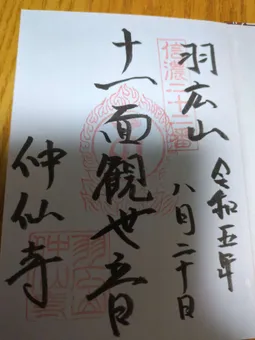 羽広山
令和五年
八月二十日
信濃二十二番
十一面観世音
仲仙寺